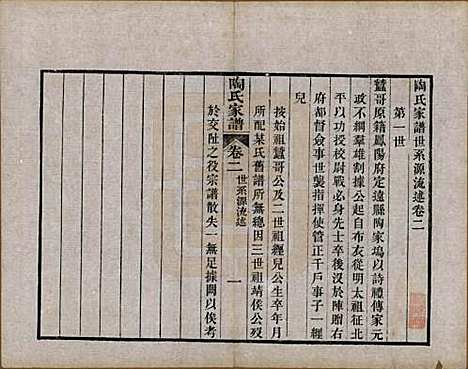 陶氏家譜世系源流述卷二
第一世
蠶哥原籍鳳陽府定遠縣陶家塢以詩禮傳家元
政不綱羣雄割據公起自布衣從明太祖征北
平以功授校尉戰必身先士卒後沒於陣贈右
府都督僉事世襲指揮使管正千戶事子一經
兒
按始祖蠶哥公及二世祖經兒公生卒年月
所配某氏舊譜所無總因三世祖靖侯公歿
於交阯之役宗譜散失一無足據闕以俟考
陶氏家譜 卷二 世系源流述 一